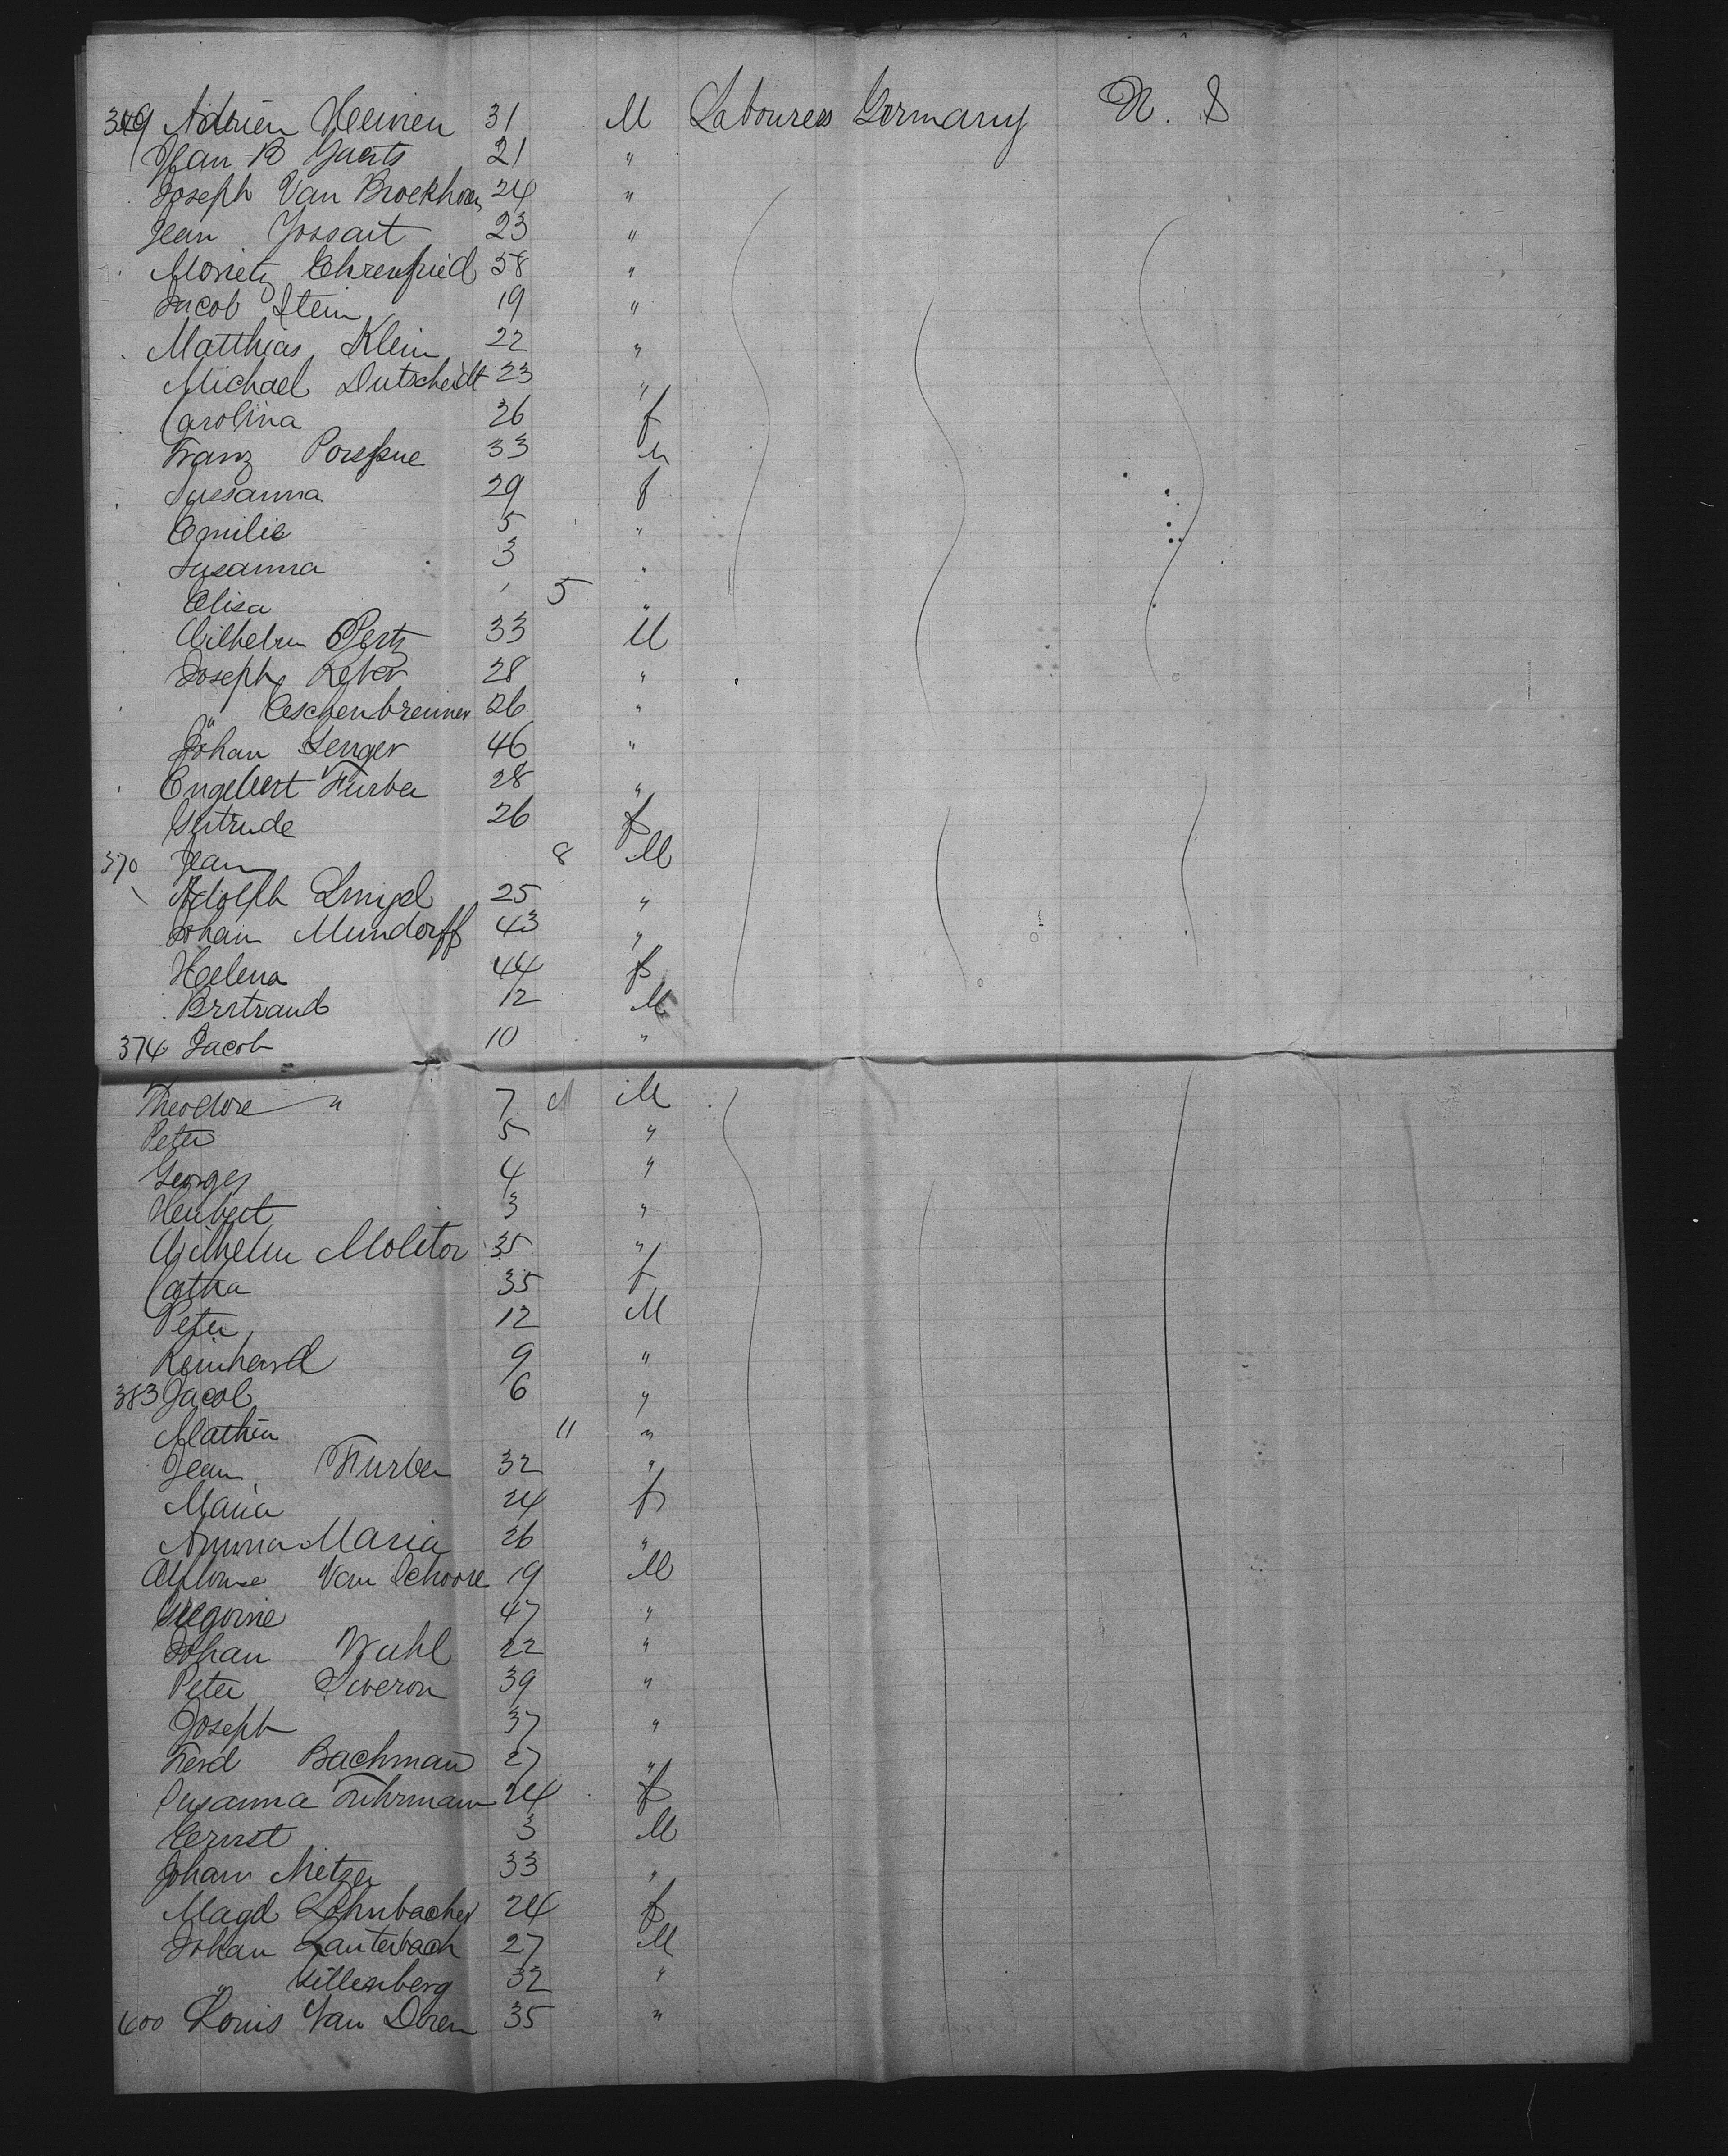 349 Adrien Heinen 31 M Labourers Germany U. S
Jean B Gaerts 21 "
Joseph Van Broekhoven 24 "
Jean Jossart 23 "
Morietz Ehrenfried 58 "
Jacob Stein 19 "
Matthias Klein 22 "
Michael Dutscheidt 23 "
Carolina 26 f
Franz 33 M
Sussanna 29 f
Emilie 5 "
Susanna 3 "
Elisa 1 5 "
Wilhelm Pertz 33 M
Joseph Reker 28 "
" Eschenbrenner 26 "
Johan Senger 46 "
Engelbert Furber 28 "
Gertrude 26 f
370 Jean 8 M
Adolph 25 "
Johan Mundorff 43 "
Helena 44 f
Bertrand 12 M
374 Jacob 10 "
Theodore " 7 M
Peter 5 "
Georges 4 "
Heubert 3 "
Wilhelm Molitor 35 "
Catha 35 f
Peter 12 M
Reinhard 9 "
383 Jacob 6 "
Mathieu 11 "
Jean Furber 32 "
Maria 24 f
Anna Maria 26 "
Alphonse Van Schoore 19 M
Gregoire 47 "
Johan Wahl 22 "
Peter Siveron 39 "
Joseph 37 "
Ferd Bachman 27 "
Susanna Fuhrmann 24 f
Ernst 3 M
Johann Metzer 33 "
Magd Lohnbacher 24 f
Johan Lauterbach 27 M
" Hillenberg 32 "
400 Louis Van Doren 35 "